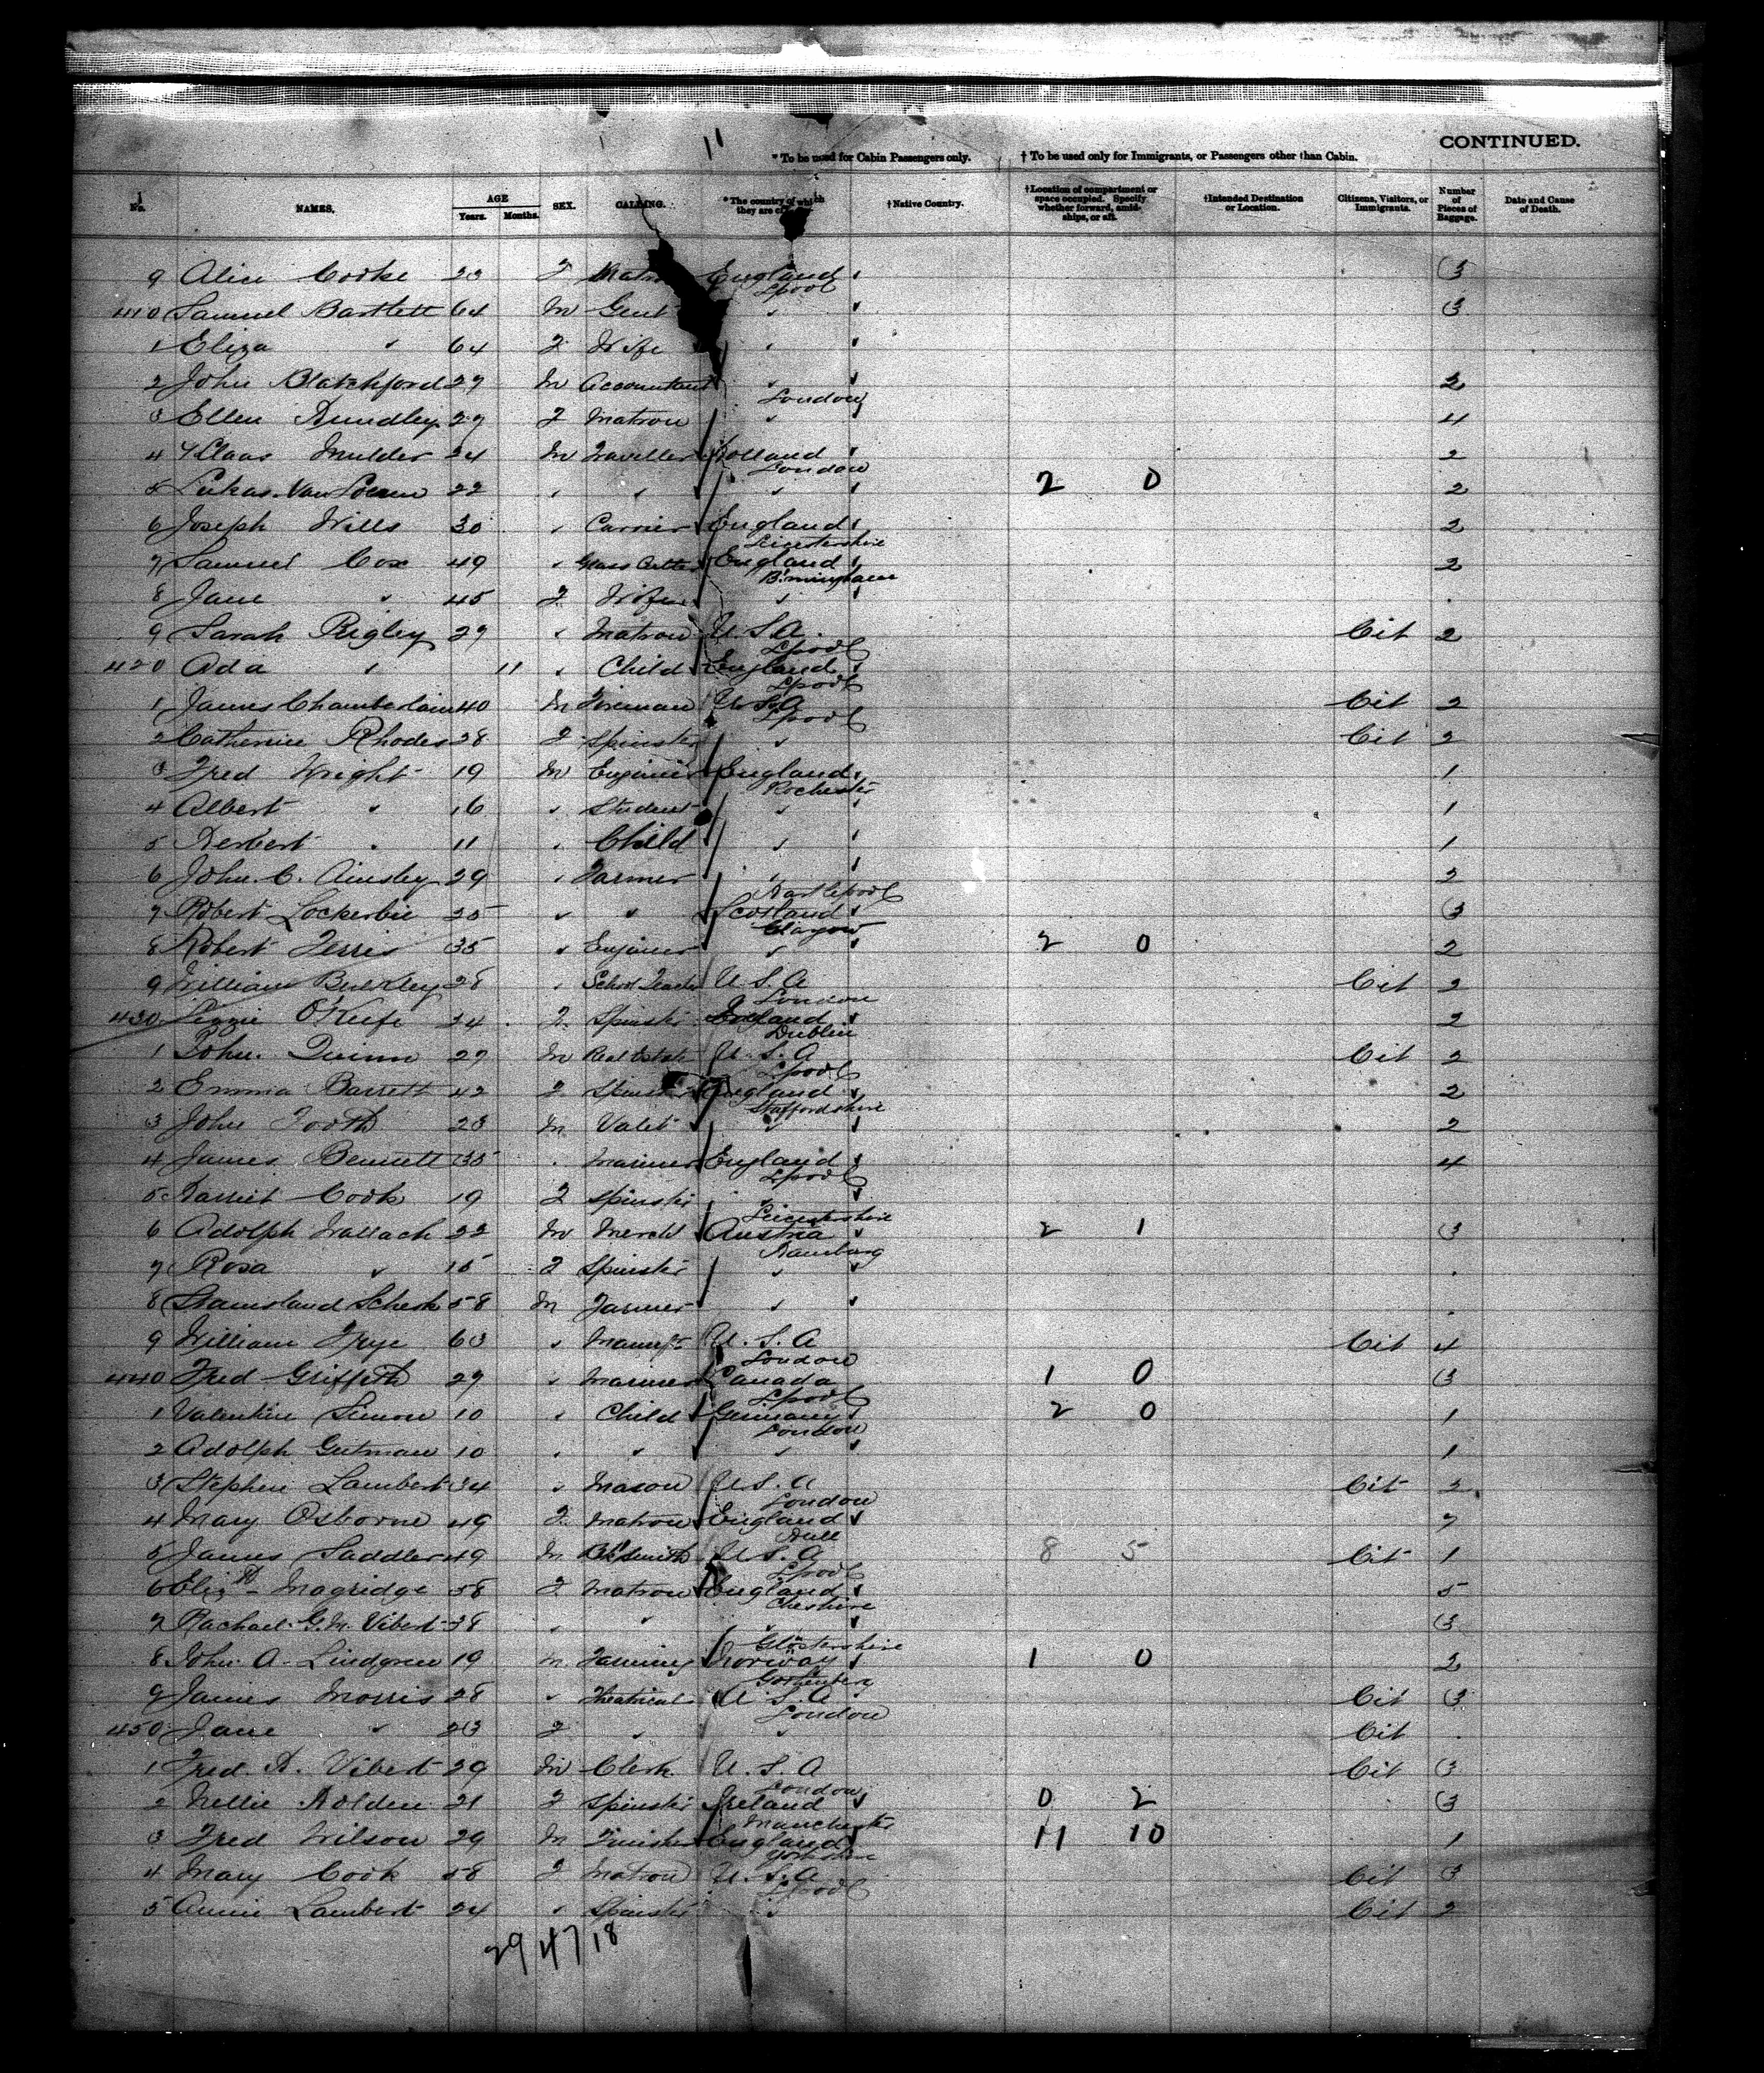 11
CONTINUED.
* To be used for Cabin Passengers only. † To be used only for Immigrants, or Passengers other than Cabin.
No. NAMES. AGE Years. Months. SEX. CALLING. * The country of which they are †Native Country. †Location of compartment or space occupied. Specify whether forward, amidships, or aft. †Intended Destination or Location. Citizens, Visitors, or Immigrants. Number of Pieces of Baggage. Date and Cause of Death.
9 Alice Cooke 23 F England 3
Lpool
410 Samuel Bartlett 64 M Gent " 3
1 Eliza " 64 F Wife "
2 John Blatchford 27 M Accountant " 2
London
3 Ellen 27 F Matron " 4
4 Klaas Mulder 24 M Traveller Holland 2
London
5 Lukas Van 22 " " " 2 0 2
6 Joseph Wills 30 " Carrier England 2
Leicestershire
7 Samuel Cox 49 " Glass Cutter England 2
Birmingham
8 Jane " 45 F Wife "
9 Sarah Rigley 29 " Matron U.S.A. Cit 2
Lpool
420 Ada " 11 " Child England
Lpool
1 James Chamberlain 40 M Fireman U.S.A Cit 2
Lpool
2 Catherine Rhodes 28 F Spinster " Cit 2
3 Fred Wright 19 M Engineer England 1
Rochester
4 Albert " 16 " Student " 1
5 Herbert " 11 " Child " 1
6 John. C. Ainsley 29 " Farmer " 2
Hartlepool
7 Robert Lockerbie 25 " " Scotland 3
Glasgow
8 Robert Ferris 35 " Engineer " 2 0 2
9 William Bulkley 28 " School Teacher U.S.A Cit 2
London
430 Lizzie O'Keife 24 F Spinster 2
Dublin
1 John. Quinn 27 M Real Estate U.S.A Cit 2
Lpool
2 Emma Barrett 42 F Spinster England 2
Staffordshire
3 John Tooth 23 M Valet " 2
4 James Bennett 35 " Mariner England 4
Lpool
5 Harriet Cook 19 F Spinster "
Leicestershire
6 Adolph Wallach 22 M Mercht Austria 2 1 3
Hamburg
7 Rosa " 15 F Spinster "
8 58 M Farmer "
9 William Frye 63 " U.S.A Cit 4
London
440 Fred Griffith 27 " Mariner Canada 1 0 3
Lpool
1 Valentine Simon 10 " Child Germany 2 0 1
London
2 Adolph Gutman 10 " " " 1
3 Stephen Lambert 34 " Mason U.S.A Cit 2
London
4 Mary Osborne 49 F Matron England 7
Hull
5 James Saddler 49 M Blksmith U.S.A 8 5 Cit 1
Lpool
6 Elizth Magridge 58 F Matron England 5
Cheshire
7 Rachael. G.M. Vibert 38 " " " 3
Glostershire
8 John A. Lindgren 19 M Farming Norway 1 0 2
Gothenberg
9 James Morris 28 " Theatrical U.S.A Cit 3
London
450 Jane " 23 F " " Cit
1 Fred. H. Vibert 29 M Clerk U.S.A Cit 3
London
2 Nellie Holden 21 F Spinster Ireland 0 2 3
Manchester
3 Fred Wilson 29 M Finisher England 11 10 1
Yorkshire
4 Mary Cook 58 F Matron U.S.A Cit 3
Lpool
5 Annie Lambert 24 " Spinster " Cit 2
29 47 18